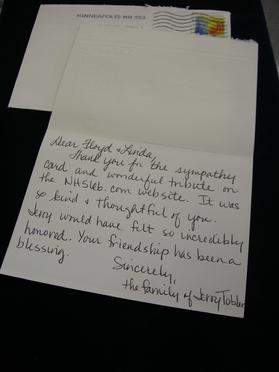 MINNEAPOLIS MN 553
Dear Floyd & Linda,
Thank you for the sympathy
card and wonderful tribute on
the NHS166.com website. It was
so kind & thoughtful of you.
Jerry would have felt so incredibly
honored. Your friendship has been a
blessing.
Sincerely,
the family of Jerry Tobler